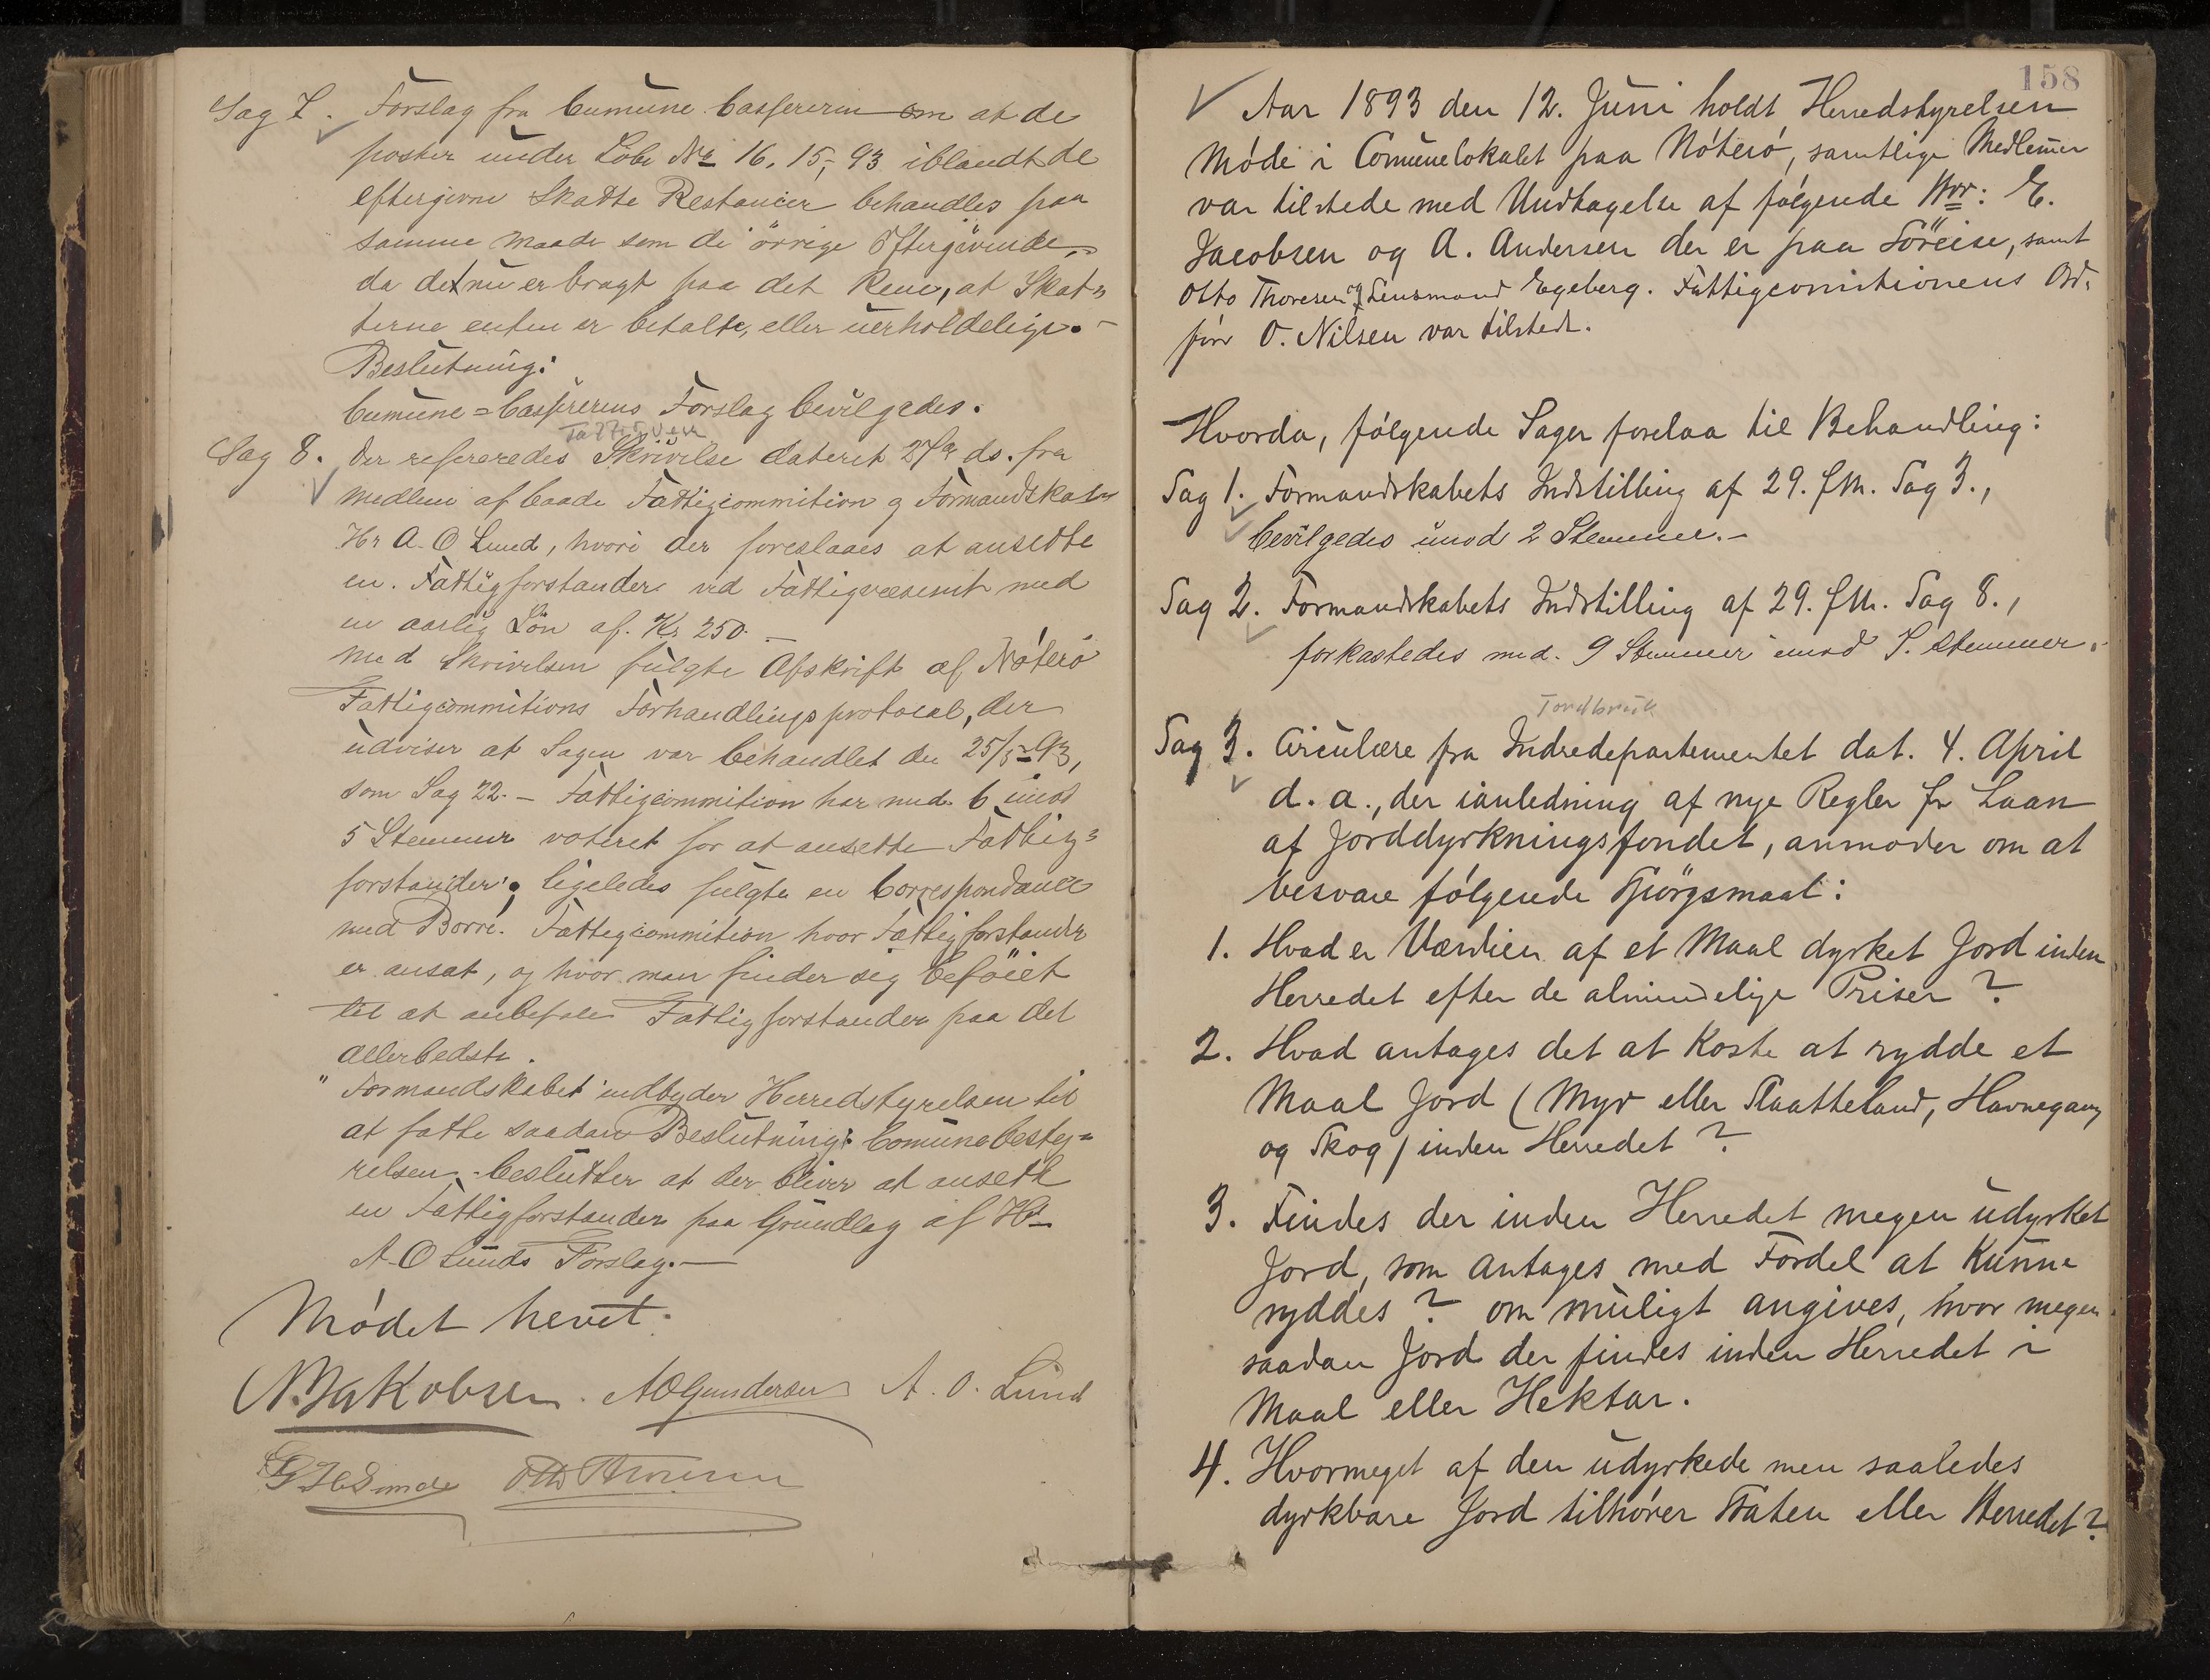 Sag 7. Forslag fra Cumune Casserern om at de
poster under Løbe No 16, 15, 93 iblandt de
eftergivne Skatte Restancer behandles paa
samme Maade som de øvrige Eftergivende,
da det nu er bragt paa det Rene, at Skat-
terne enten er betalte, eller uerholdelige. -
Beslutning:
Cumune=Casserens Forslag bevilgedes.
Fattigvæsen
Sag 8. Der refereredes Skrivelse dateret 27de ds. fra
Medlem af baade Fattigcommition og Formandskab
Hr A. O Lund, hvori der foreslaaes at ansette
en Fattigforstander ved Fattigvæsenet med
en aarlig Løn af Kr 250. -
Med Skrivelsen fulgte Afskrift af Nøterø
Fattigcommitions Forhandlingsprotocol, der
udviser at Sagen var behandlet den 25/5-93,
som Sag 22. - Fattigcommition har med 6 imod
5 Stemmer voteret for at ansette Fattig=
forstander; ligeledes fulgte en Correspondance
med Borre Fattigcommition hvor Fattigforstander
er ansat, og hvor man finder sig beføiet
til at anbefale Fattigforstander paa det
allerbedste.
" Formandskabet indbyder Herredstyrelsen til
at fatte saadan Beslutning: Comunebesty=
relsen beslutter at der bliver at ansette
en Fattigforstander paa Grundlag af Hr
A. O Lunds Forslag. -
Mødet hevet.
N. Jakobsen. A O Gundersen A. O. Lund
Otto Thoresen
158
Aar 1893 den 12. Juni holdt Herredstyrelsen
Møde i Comunelokalet paa Nøterø, samtlige Medlemer
var tilstede med Undtagelse af følgende Hrr: E.
Jacobsen og A. Andersen der er paa Søreise, samt
Otto Thoresen og Lensmand Egeberg. Fattigcomitionens Ord.
fører O. Nilsen var tilstede.
Hvorda, følgende Sager forelaa til Behandling:
Sag 1. Formandskabets Indstilling af 29. f.M. Sag 3.,
bevilgedes imod 2 Stemmer. -
Sag 2. Formandskabets Indstilling af 29. f.M. Sag 8.,
forkastedes med 9 Stemmer imod 7. Stemmer.
Jordbruk
Sag 3. Circulære fra Indredepartementet dat. 4. April
d. a., der ianledning af nye Regler for Laan
af Jorddyrkningsfondet, anmoder om at
besvare følgende Spørgsmaal:
1. Hvad er Værdien af et Maal dyrket Jord inden
Herredet efter de almindelige Priser?
2. Hvad antages det at koste at rydde et
Maal Jord (Myr eller Slaatteland, Havnegang
og Skog) inden Herredet?
3. Findes der inden Herredet megen udyrket
Jord, som antages med Fordel at kunne
ryddes? om muligt angives, hvor megen
saadan Jord der findes inden Herredet i
Maal eller Hektar.
4. Hvormeget af den udyrkede men saaledes
dyrkbare Jord tilhører Staten eller Herredet?